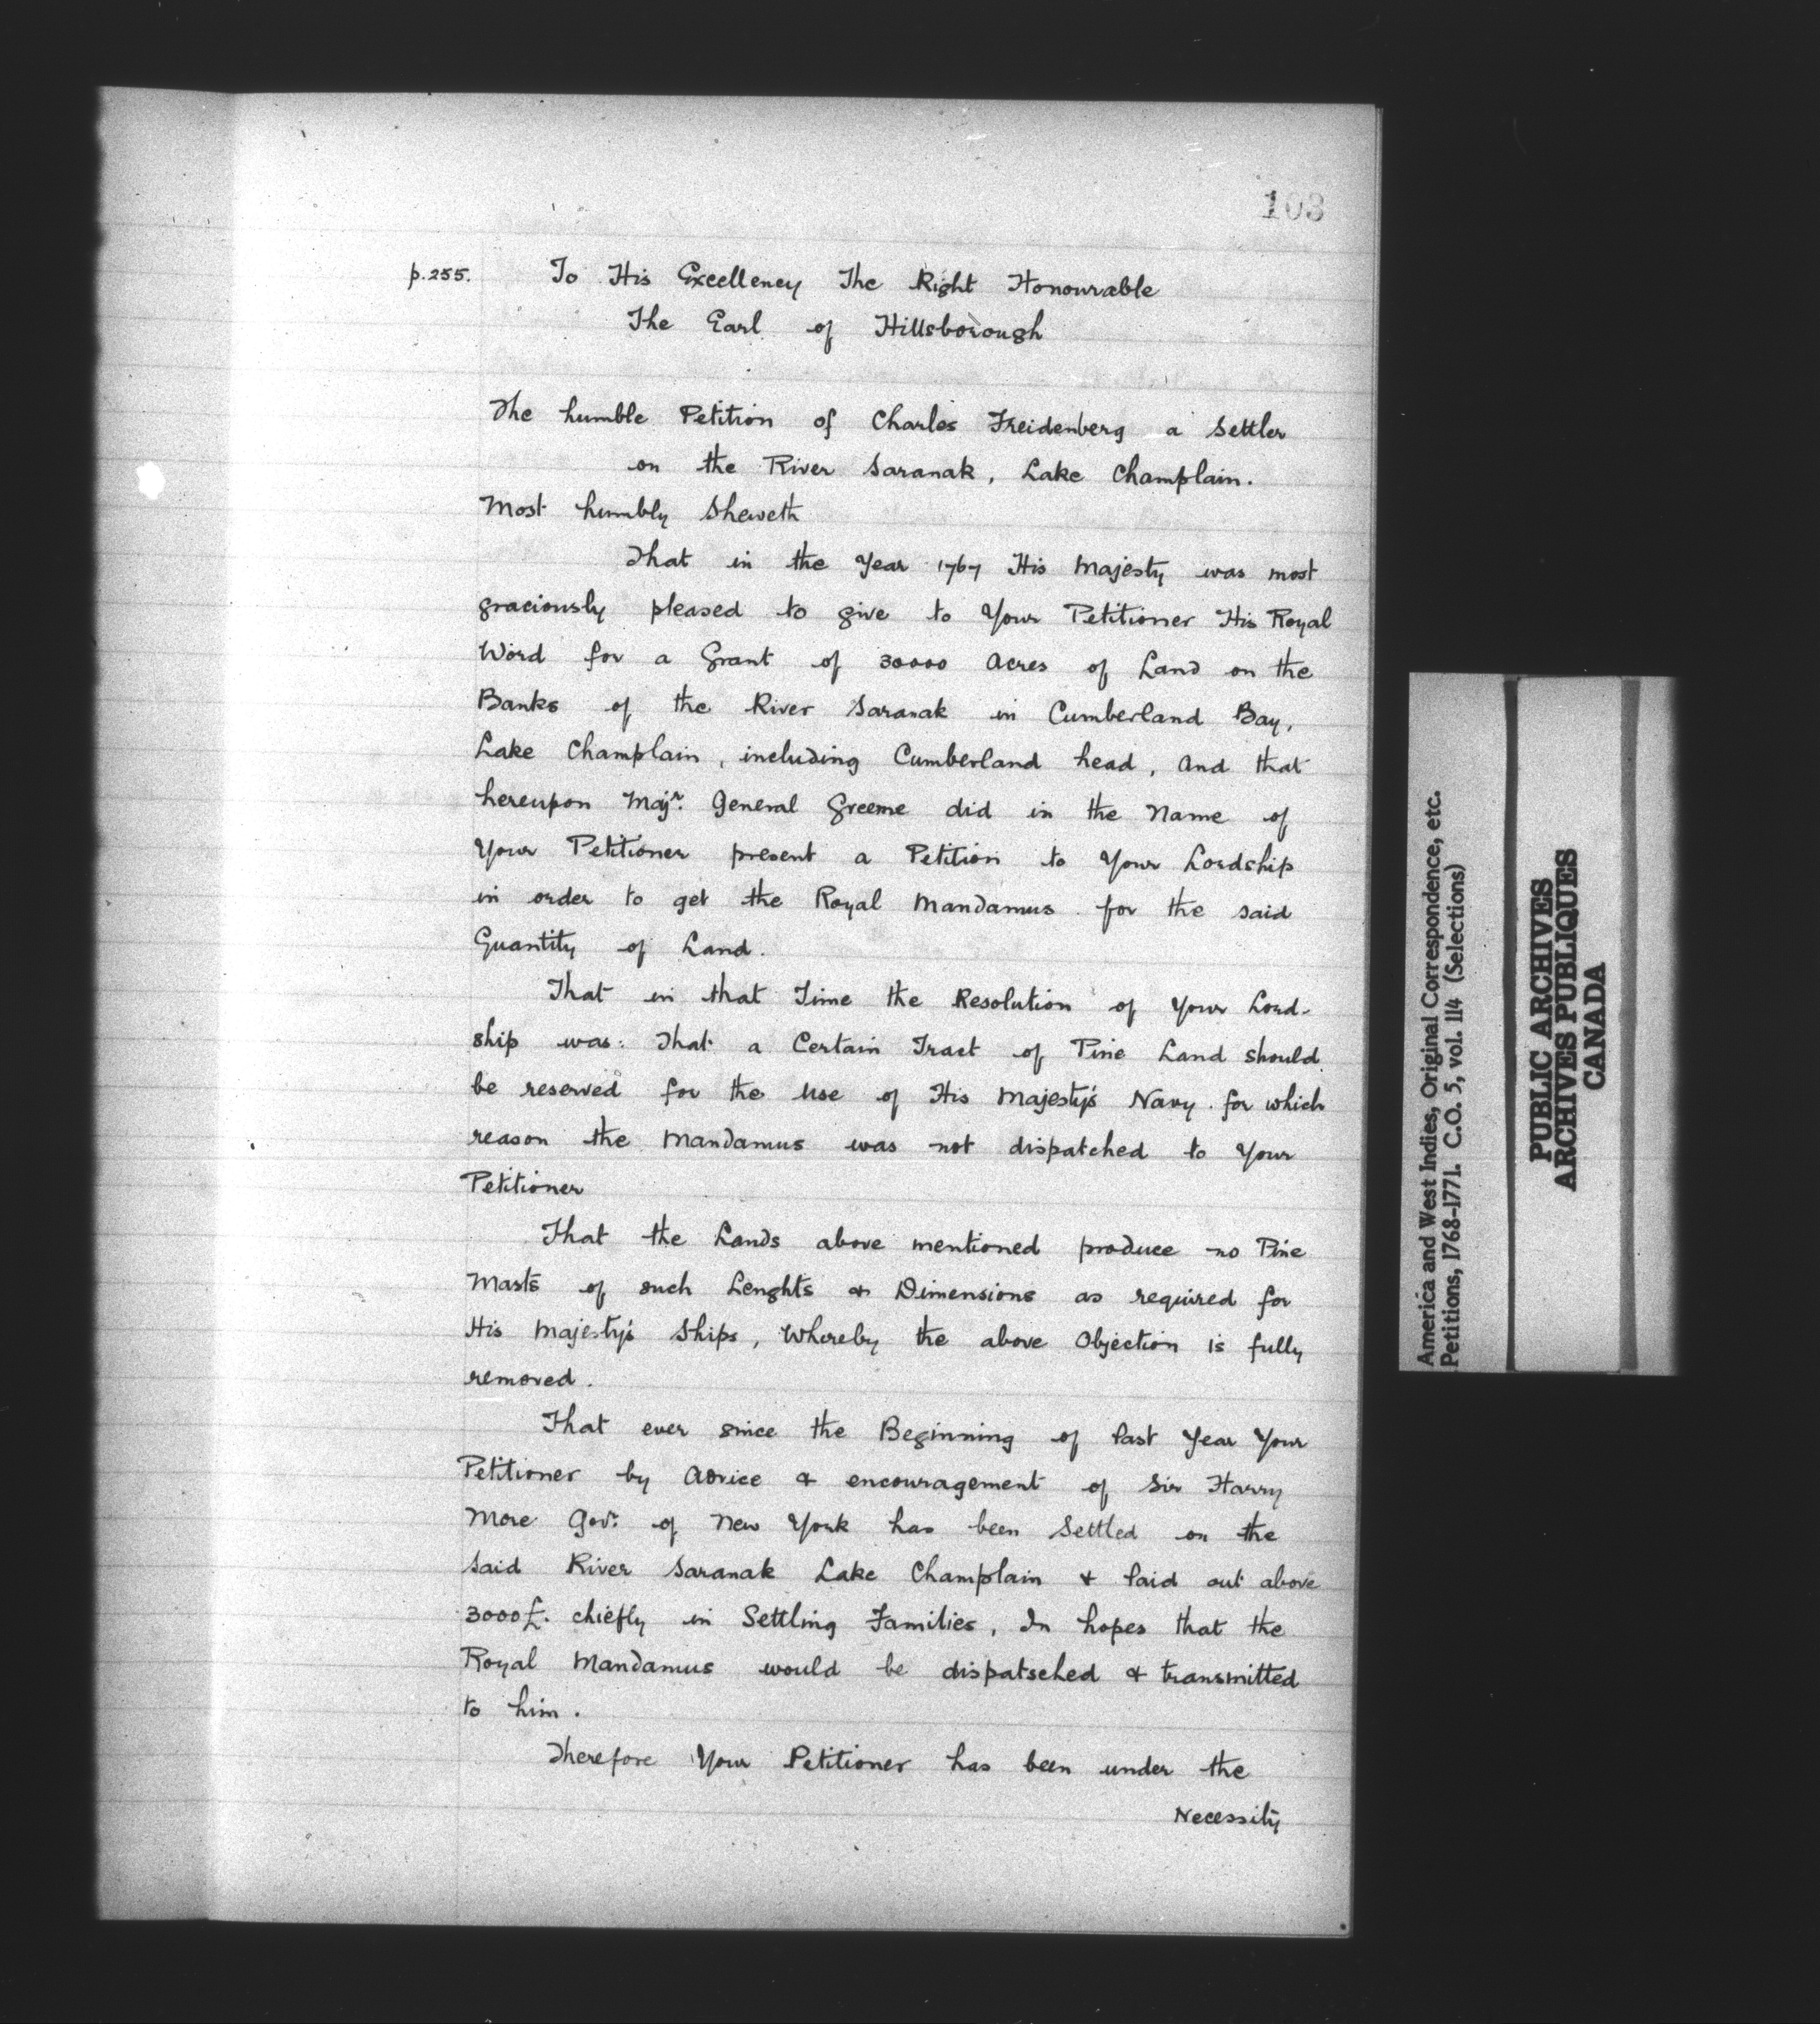 103
p.255. To His Excellency The Right Honourable
The Earl of Hillsborough
The humble Petition of Charles Freidenberg a Settler
on the River Saranak, Lake Champlain.
Most humbly Sheweth
That in the Year 1767 His Majesty was most
graciously pleased to give to Your Petitioner His Royal
Word for a Grant of 30000 Acres of Land on the
Banks of the River Saranak in Cumberland Bay,
Lake Champlain, including Cumberland head, And that
hereupon Majr. General Greeme did in the Name of
Your Petitioner present a Petition to Your Lordship
in order to get the Royal Mandamus for the said
Quantity of Land.
That in that Time the Resolution of Your Lord-
ship was: That a Certain Tract of Pine Land should
be reserved for the Use of His Majesty's Navy. for which
reason the Mandamus was not dispatched to Your
Petitioner
That the Lands above mentioned produce no Pine
Masts of such Lenghts & Dimensions as required for
His Majesty's Ships, Whereby the above Objection is fully
removed.
That ever since the Beginning of last Year Your
Petitioner by Advice & encouragement of Sir Harry
More Govr. of New York has been Settled on the
said River Saranak Lake Champlain & laid out above
3000£. chiefly in Settling Families, In hopes that the
Royal Mandamus would be dispatsched & transmitted
to him.
Therefore Your Petitioner has been under the
Necessity
America and West Indies, Original Correspondence, etc.
Petitions, 1768-1771. C.O. 5, vol. 114 (Selections)
PUBLIC ARCHIVES
ARCHIVES PUBLIQUES
CANADA